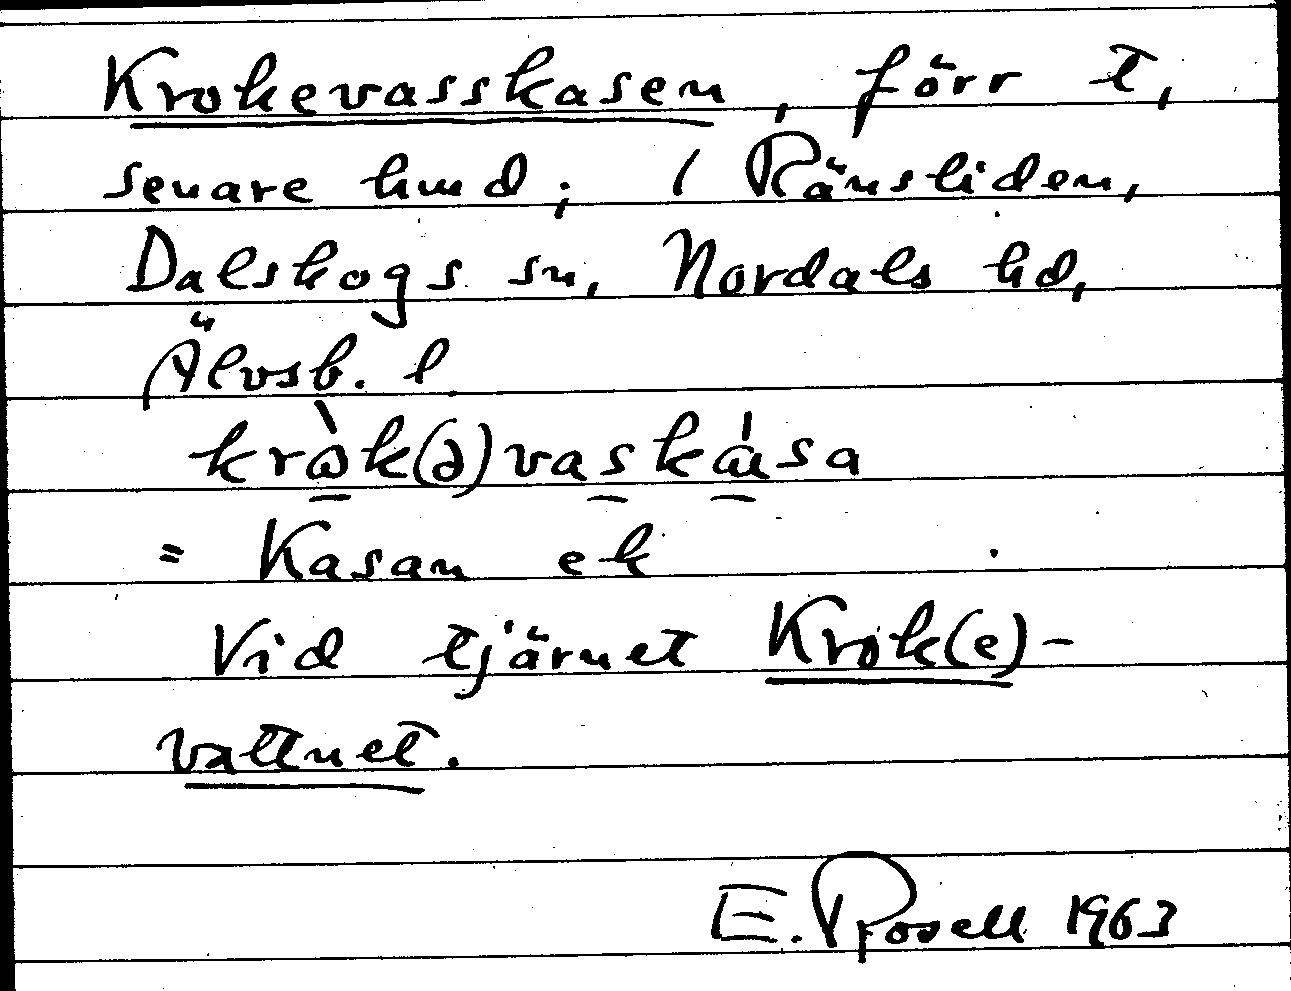 Krokevasskasen, förr t,
senare hmd; i Ränsliden,
Dalskogs sn, Nordals hd,
Älvsb. l
= Kasan ek
Vid tjärnet Krok(e)-
vattnet.
E. Rosell 1963